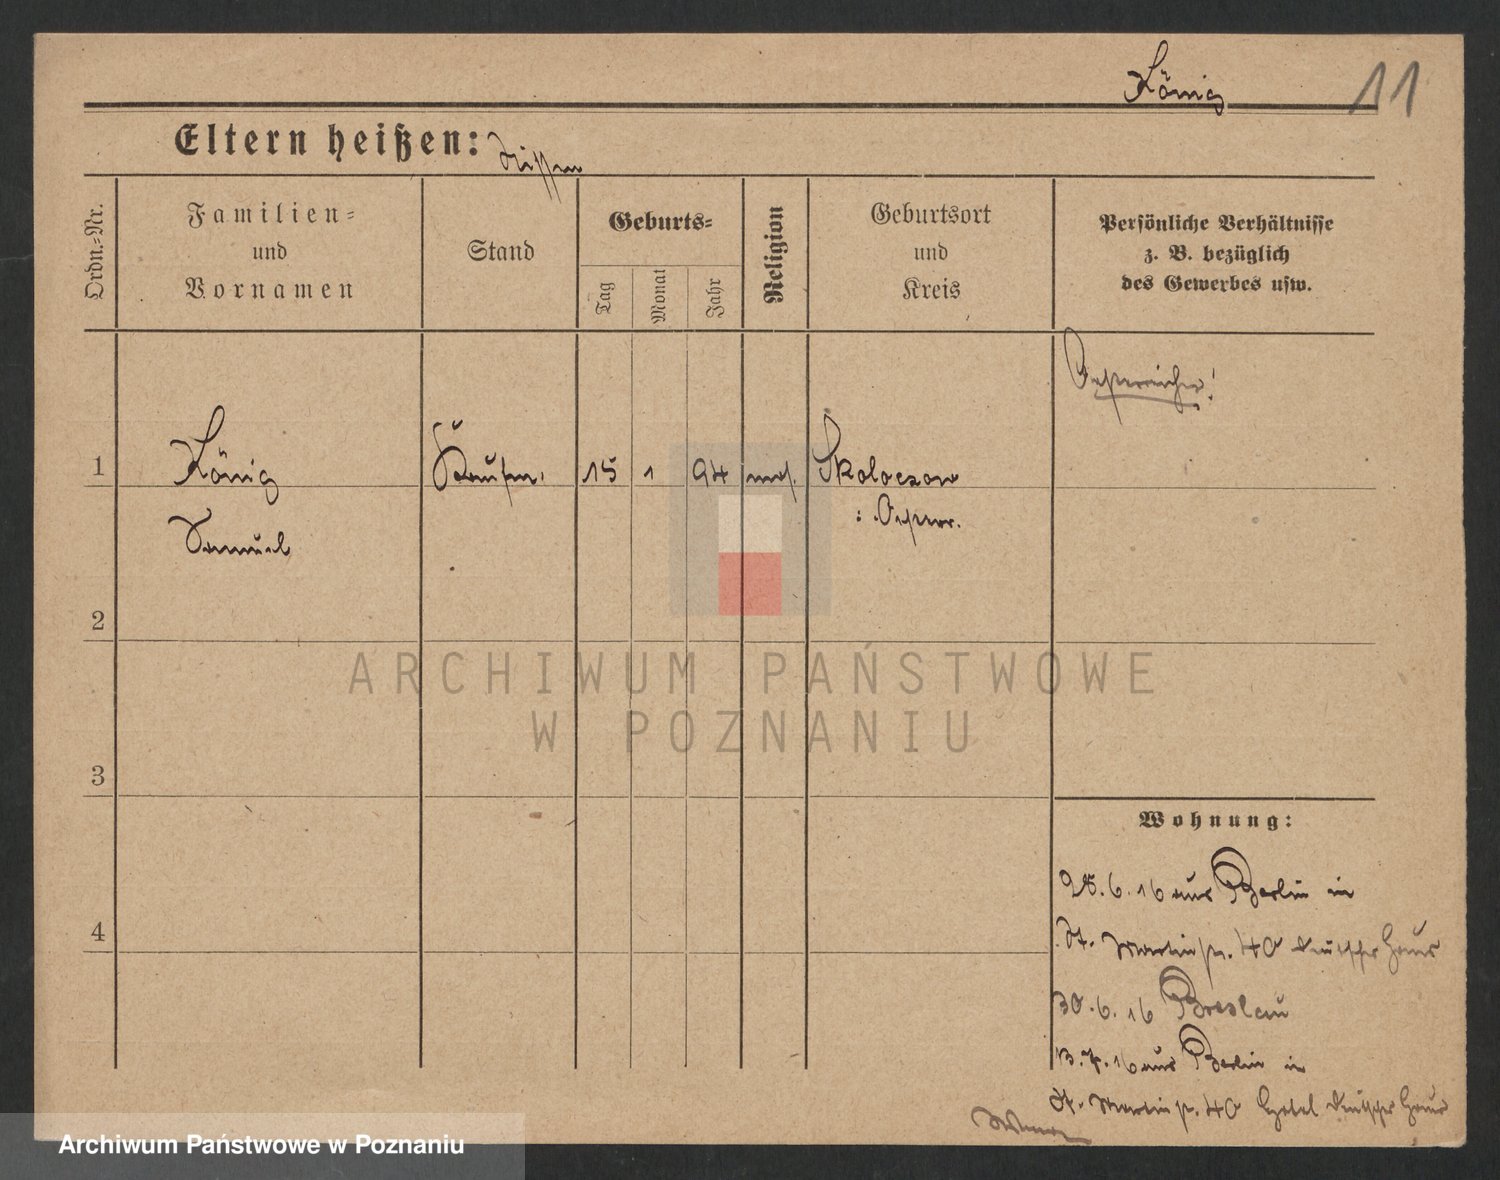 König 11
Eltern heißen:
Ordn.-Nr.
Familien-
und
Vornamen
Stand
Geburts-
Tag
Monat
Jahr
Religion
Geburtsort
und
Kreis
Persönliche Verhältnisse
z. B. bezüglich
des Gewerbes usw.
Oesterreicher!
1
König
Kaufm.
15
1
94
mos.
Skoloczow
i. Oesterr.
Samuel
2
3
4
ARCHIWUM PAŃSTWOWE
W POZNANIU
Wohnung:
28.6.16 aus Berlin in
St. Martinstr. 40 Deutsches Haus
30.6.16 Breslau
13.7.16 aus Berlin in
St. Martinstr. 40 Hotel Deutsches Haus
Archiwum Państwowe w Poznaniu